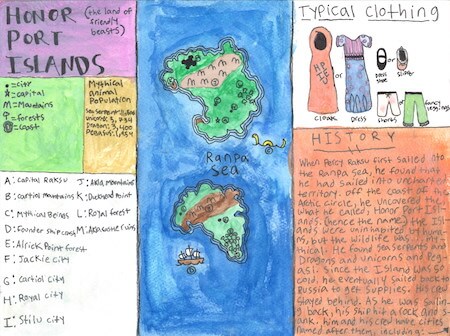 HONOR
PORT
ISLANDS
(the land of
friendly
beasts)
=city
=capital
=Mountains
=forests
=coast
Mythical
animal
Population
A: capital Raksu
B: cartiol Mountains
C: Mythical Beings
D: Founder ship coast
E: Alrick Point forest
F: Jackie city
G: cartiol city
H: Royal city
I: Stilu city
L: Royal forest
Ranpa
Sea
Typical Clothing
or
or
cloak
Dress
Dress
shoe
slipper
shorts
or
fancy
leggings
HISTORY
When Percy Raksu first sailed into
the Ranpa Sea, he found that
he had sailed into uncharted
territory. Off the coast of the
Arctic circle, he uncovered the
what he called, Honor Port Isl-
ands. (hence the name) The Isl-
ands were uninhabited by human-
s, but the wildlife was mythi-
thical. He found Sea Serpents
and Dragons and unicorns and Peg-
asi. Since the Island was so
cold, he eventually sailed back to
Russia to get supplies. His crew
stayed behind. As he was sailin-
g back, his ship hit a rock and s-
ank. him and his crew have cities
named after them, including: